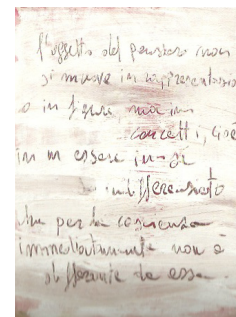 l'oggetto del pensare non
si muove in rappresentazio
o in figure, ma in
concetti, cioè
in un essere in-sé
indifferenziato
che per la coscienza
immediatamente non è
differente da essa